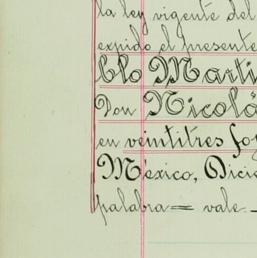 la ley vigente del
expido el presente
blo Marti
Don Nicolá
en veintitres foj
México, Dicie
palabra= vale.